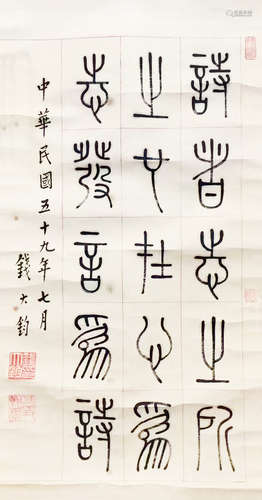 詩者志之所
之也在心為
志發言為詩
中華民國五十九年七月
錢大鈞